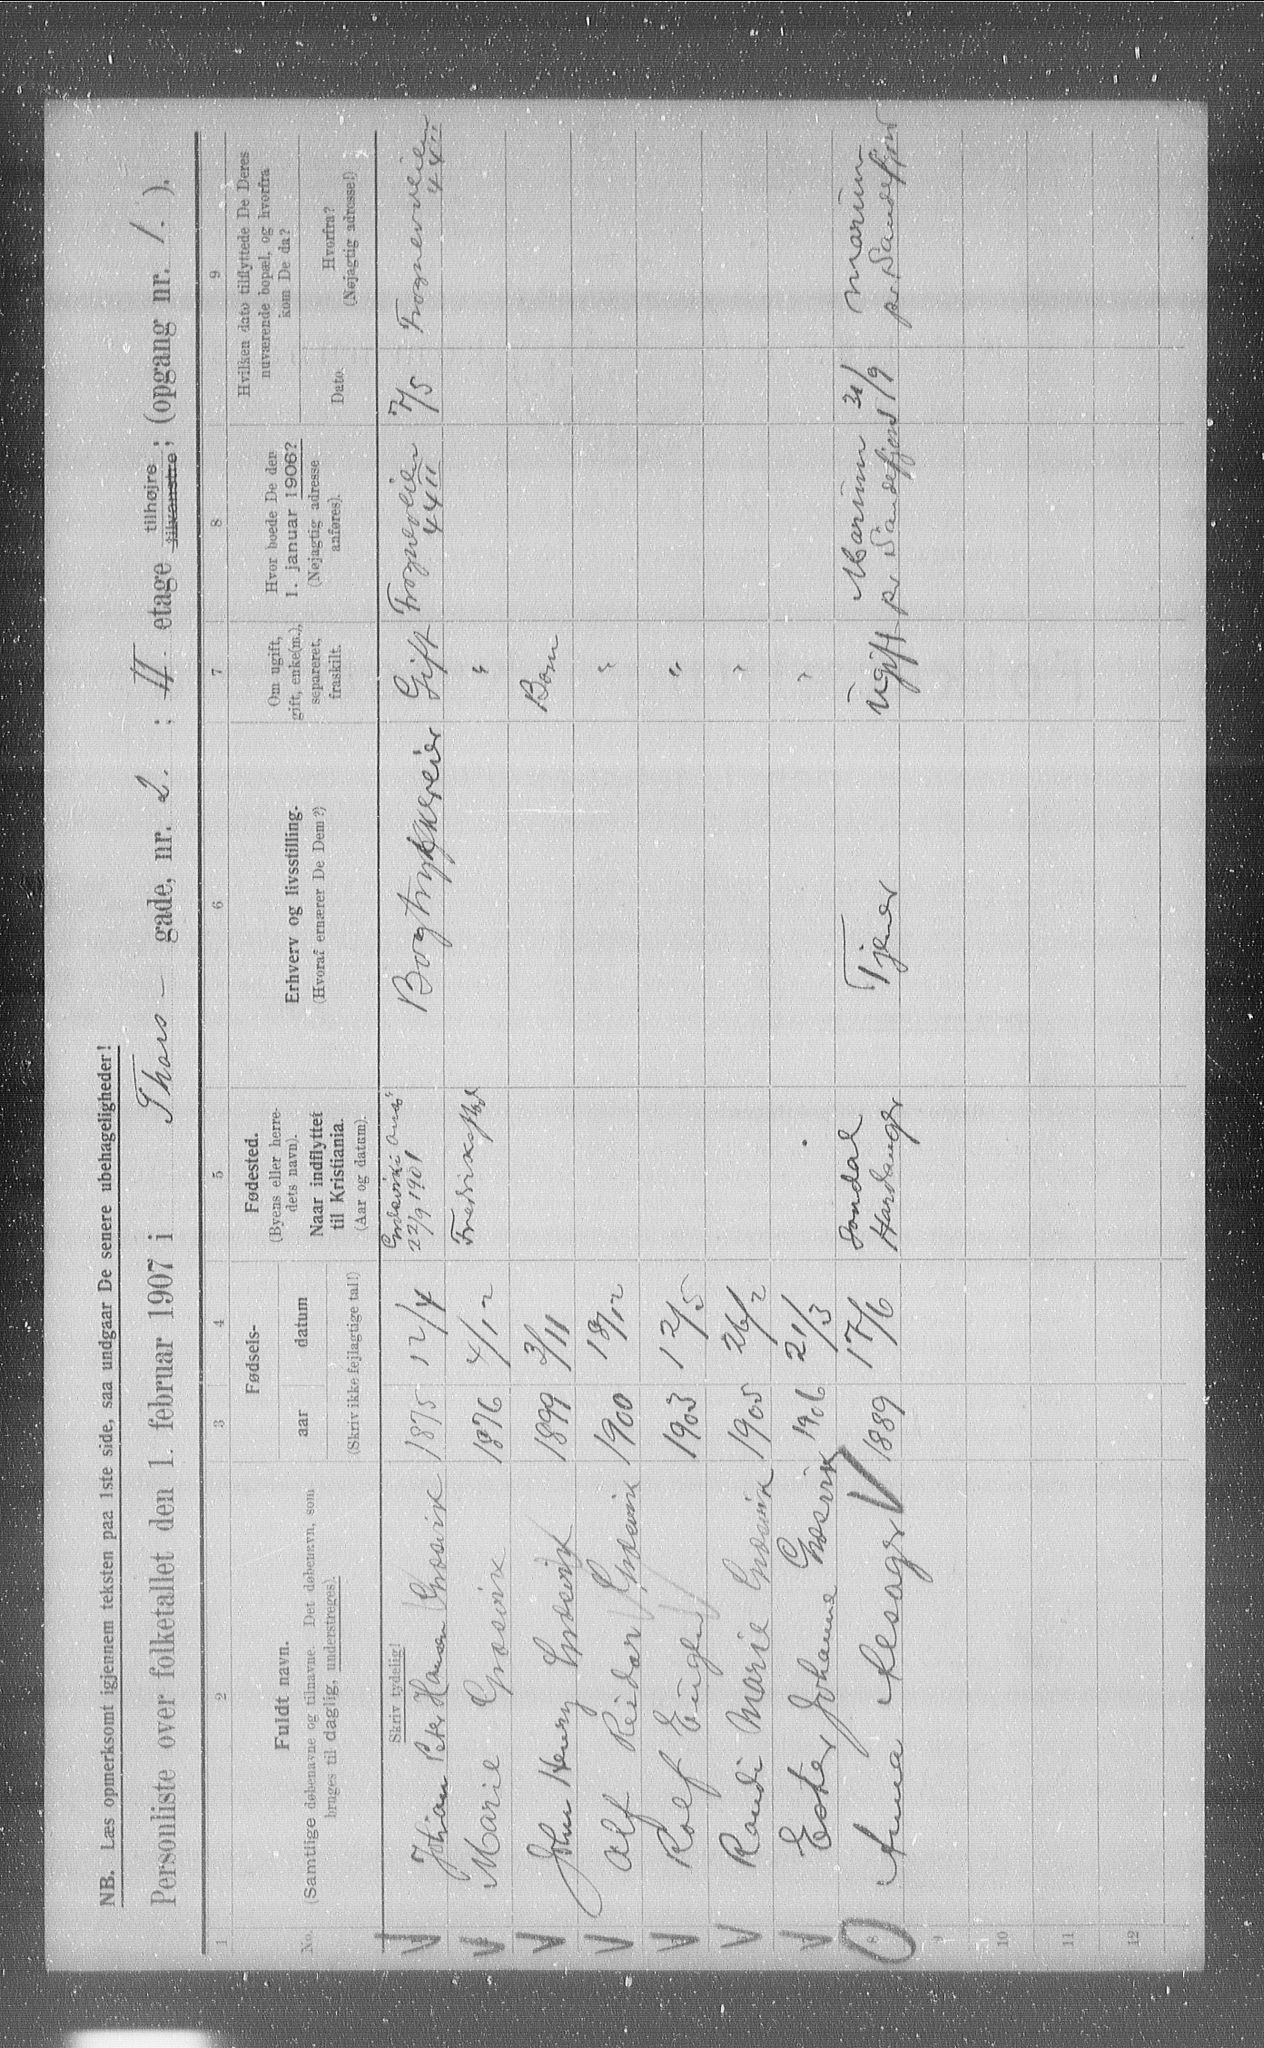 NB. Læs opmerksomt igjennem teksten paa 1ste side, saa undgaar De senere ubehageligheder!
Personliste over folketallet den 1. februar 1907 i Thors – gade, nr. 2. ; II etage tilhøjre tilvenstre; (opgang nr. 1. ).
1 2 3 4 5 6 7 8 9
No.
Fuldt navn.
(Samtlige døbenavne og tilnavne. Det døbenavn, som
bruges til daglig, understreges).
Fødsels-
aar datum
(Skriv ikke fejlagtige tal!)
Fødested.
(Byens eller herre-
dets navn).
Naar indflyttet
til Kristiania.
(Aar og datum).
Erhverv og livsstilling.
(Hvoraf ernærer De Dem?)
Om ugift,
gift, enke(m.),
separeret,
fraskilt.
Hvor boede De den
1. januar 1906?
(Nøjagtig adresse
anføres).
Hvilken dato tilflyttede De Deres
nuværende bopæl, og hvorfra
kom De da?
Dato.
Hvorfra?
(Nøjagtig adresse!)
Skriv tydelig!
Johan Peter Hansen Græsvik 1875 12/4 22/9 1901 Bogtrykkereier Gift Frogneveien 44 II 7/5 Frogneveien 44 II
Marie Græsvik 1876 4/12 Fredrikstad "
John Henry Græsvik 1899 3/11 Barn
Alf Reidar Græsvik 1900 18/12 "
Rolf Eugen 1903 12/5 "
Randi Marie Græsvik 1905 26/2 "
Ester Johanne Græsvik 1906 21/3 "
8 Anna Aesager 1889 17/6 Jondal Hardanger Tjener Ugift Marum pr. Sandefjord 21/9 Marum pr. Sandefjord
9
10
11
12